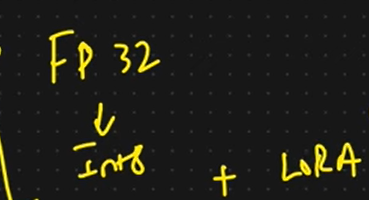 FP 32
↓
Int8
+ LoRA